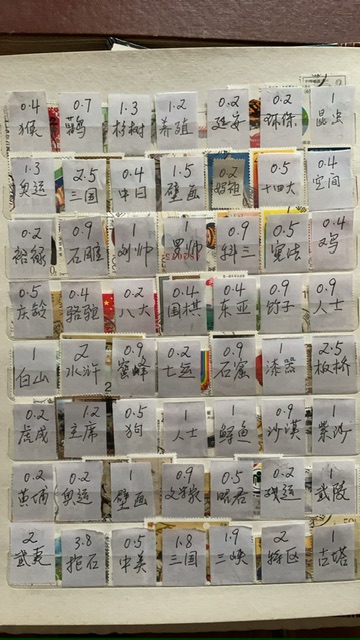 0.4 0.7 1.3 1.2 0.2 0.2 1
猴 鹤 杉树 养殖 延安 环保 昆虫
1.3 2.5 0.4 1.5 0.2 0.5 0.4
奥运 三国 中日 壁画 十四大 空间
0.2 0.9 1 1 0.9 0.5 0.4
石雕 刘帅 罗帅 科三 宪法
0.5 0.4 0.2 0.4 0.4 0.9 0.9
庆龄 骆驼 八大 围棋 东亚 竹子 人士
1 2 0.9 0.2 0.9 1 2.5
白山 水浒 蜜蜂 七运 石窟 漆器 板桥
0.2 1.2 0.5 1 1 0.9 1
虎戌 主席 狗 人士 鲟鱼 沙漠 紫沙
0.2 0.2 1 0.9 0.5 0.2 1
黄埔 奥运 壁画 文学家 昭君 武陵
2 3.8 0.5 1.8 1.9 2 1
武夷 拓石 中美 三国 三峡 特区 古塔